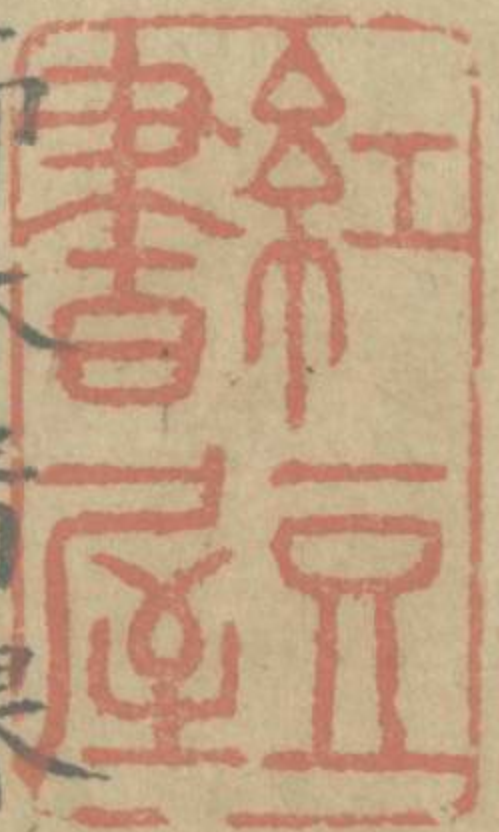 紅豆
書屋